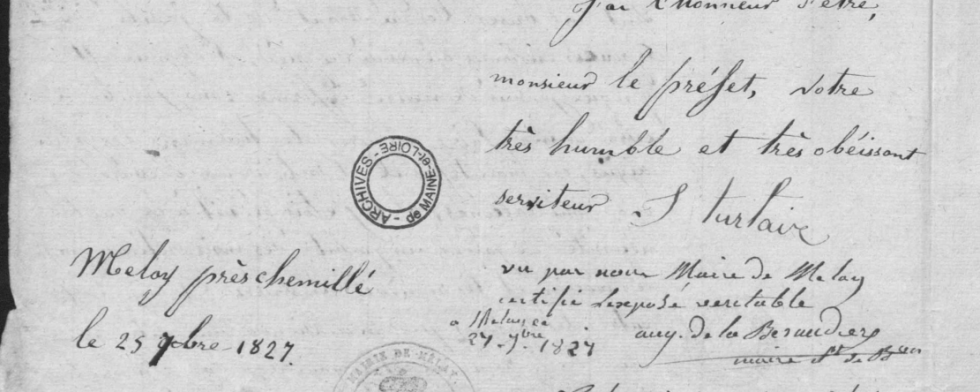 j'ai l'honneur d'être,
monsieur le préfet, votre
très humble et très obéissant
serviteur S turlaix
ARCHIVES - LOIRE - de MAINE-et-LOIRE
Melay près chemillé
le 25 7bre 1827.
vu par nous Maire de Melay
certifie lexposé veritable
a Melay ce
27 7bre 1827
aug. de la Beraudiere
maire
MAIRIE DE MELAY.